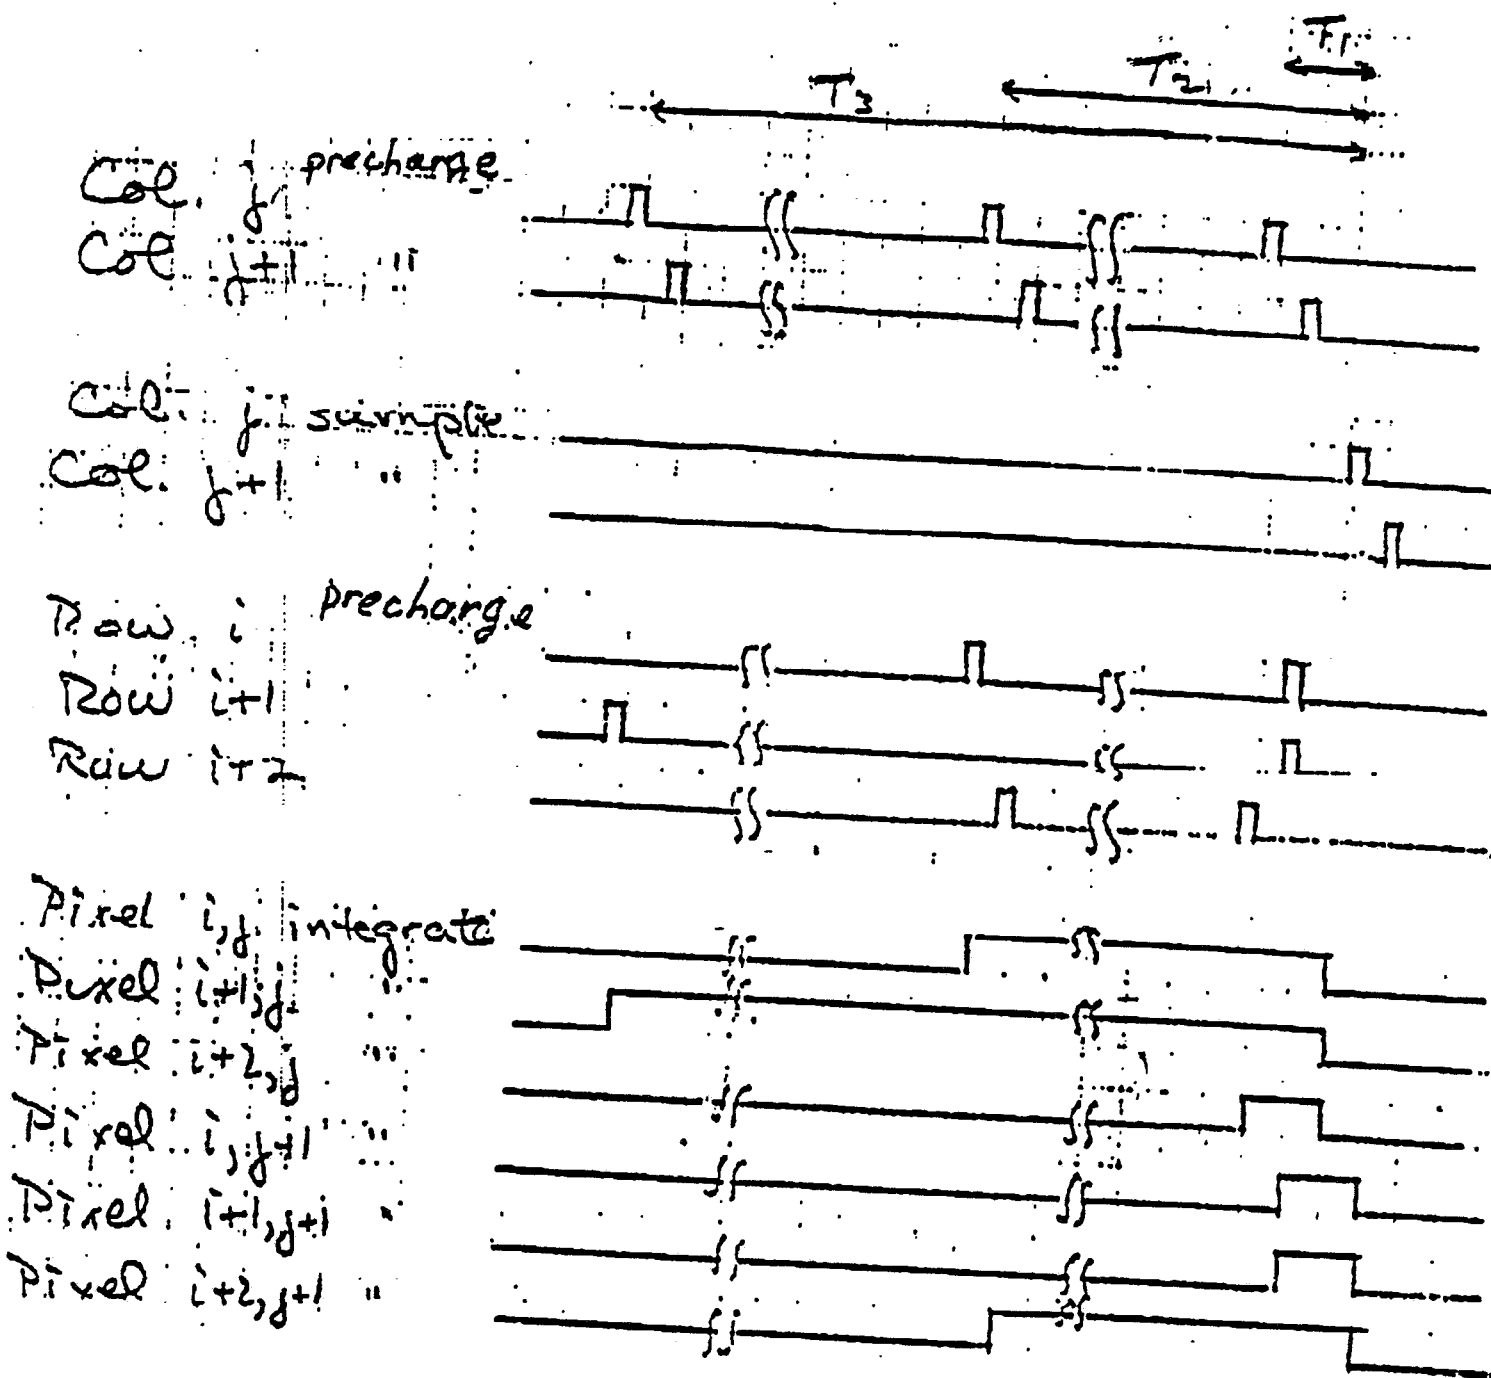 T1
T2
T3
Col. j precharge
Col. j+1 "
Col. j sample
Col. j+1 "
Row i precharge
Row i+1
Row i+2
Pixel i,j integrate
Pixel i+1,j "
Pixel i+2,j "
Pixel i,j+1 "
Pixel i+1,j+1 "
Pixel i+2,j+1 "